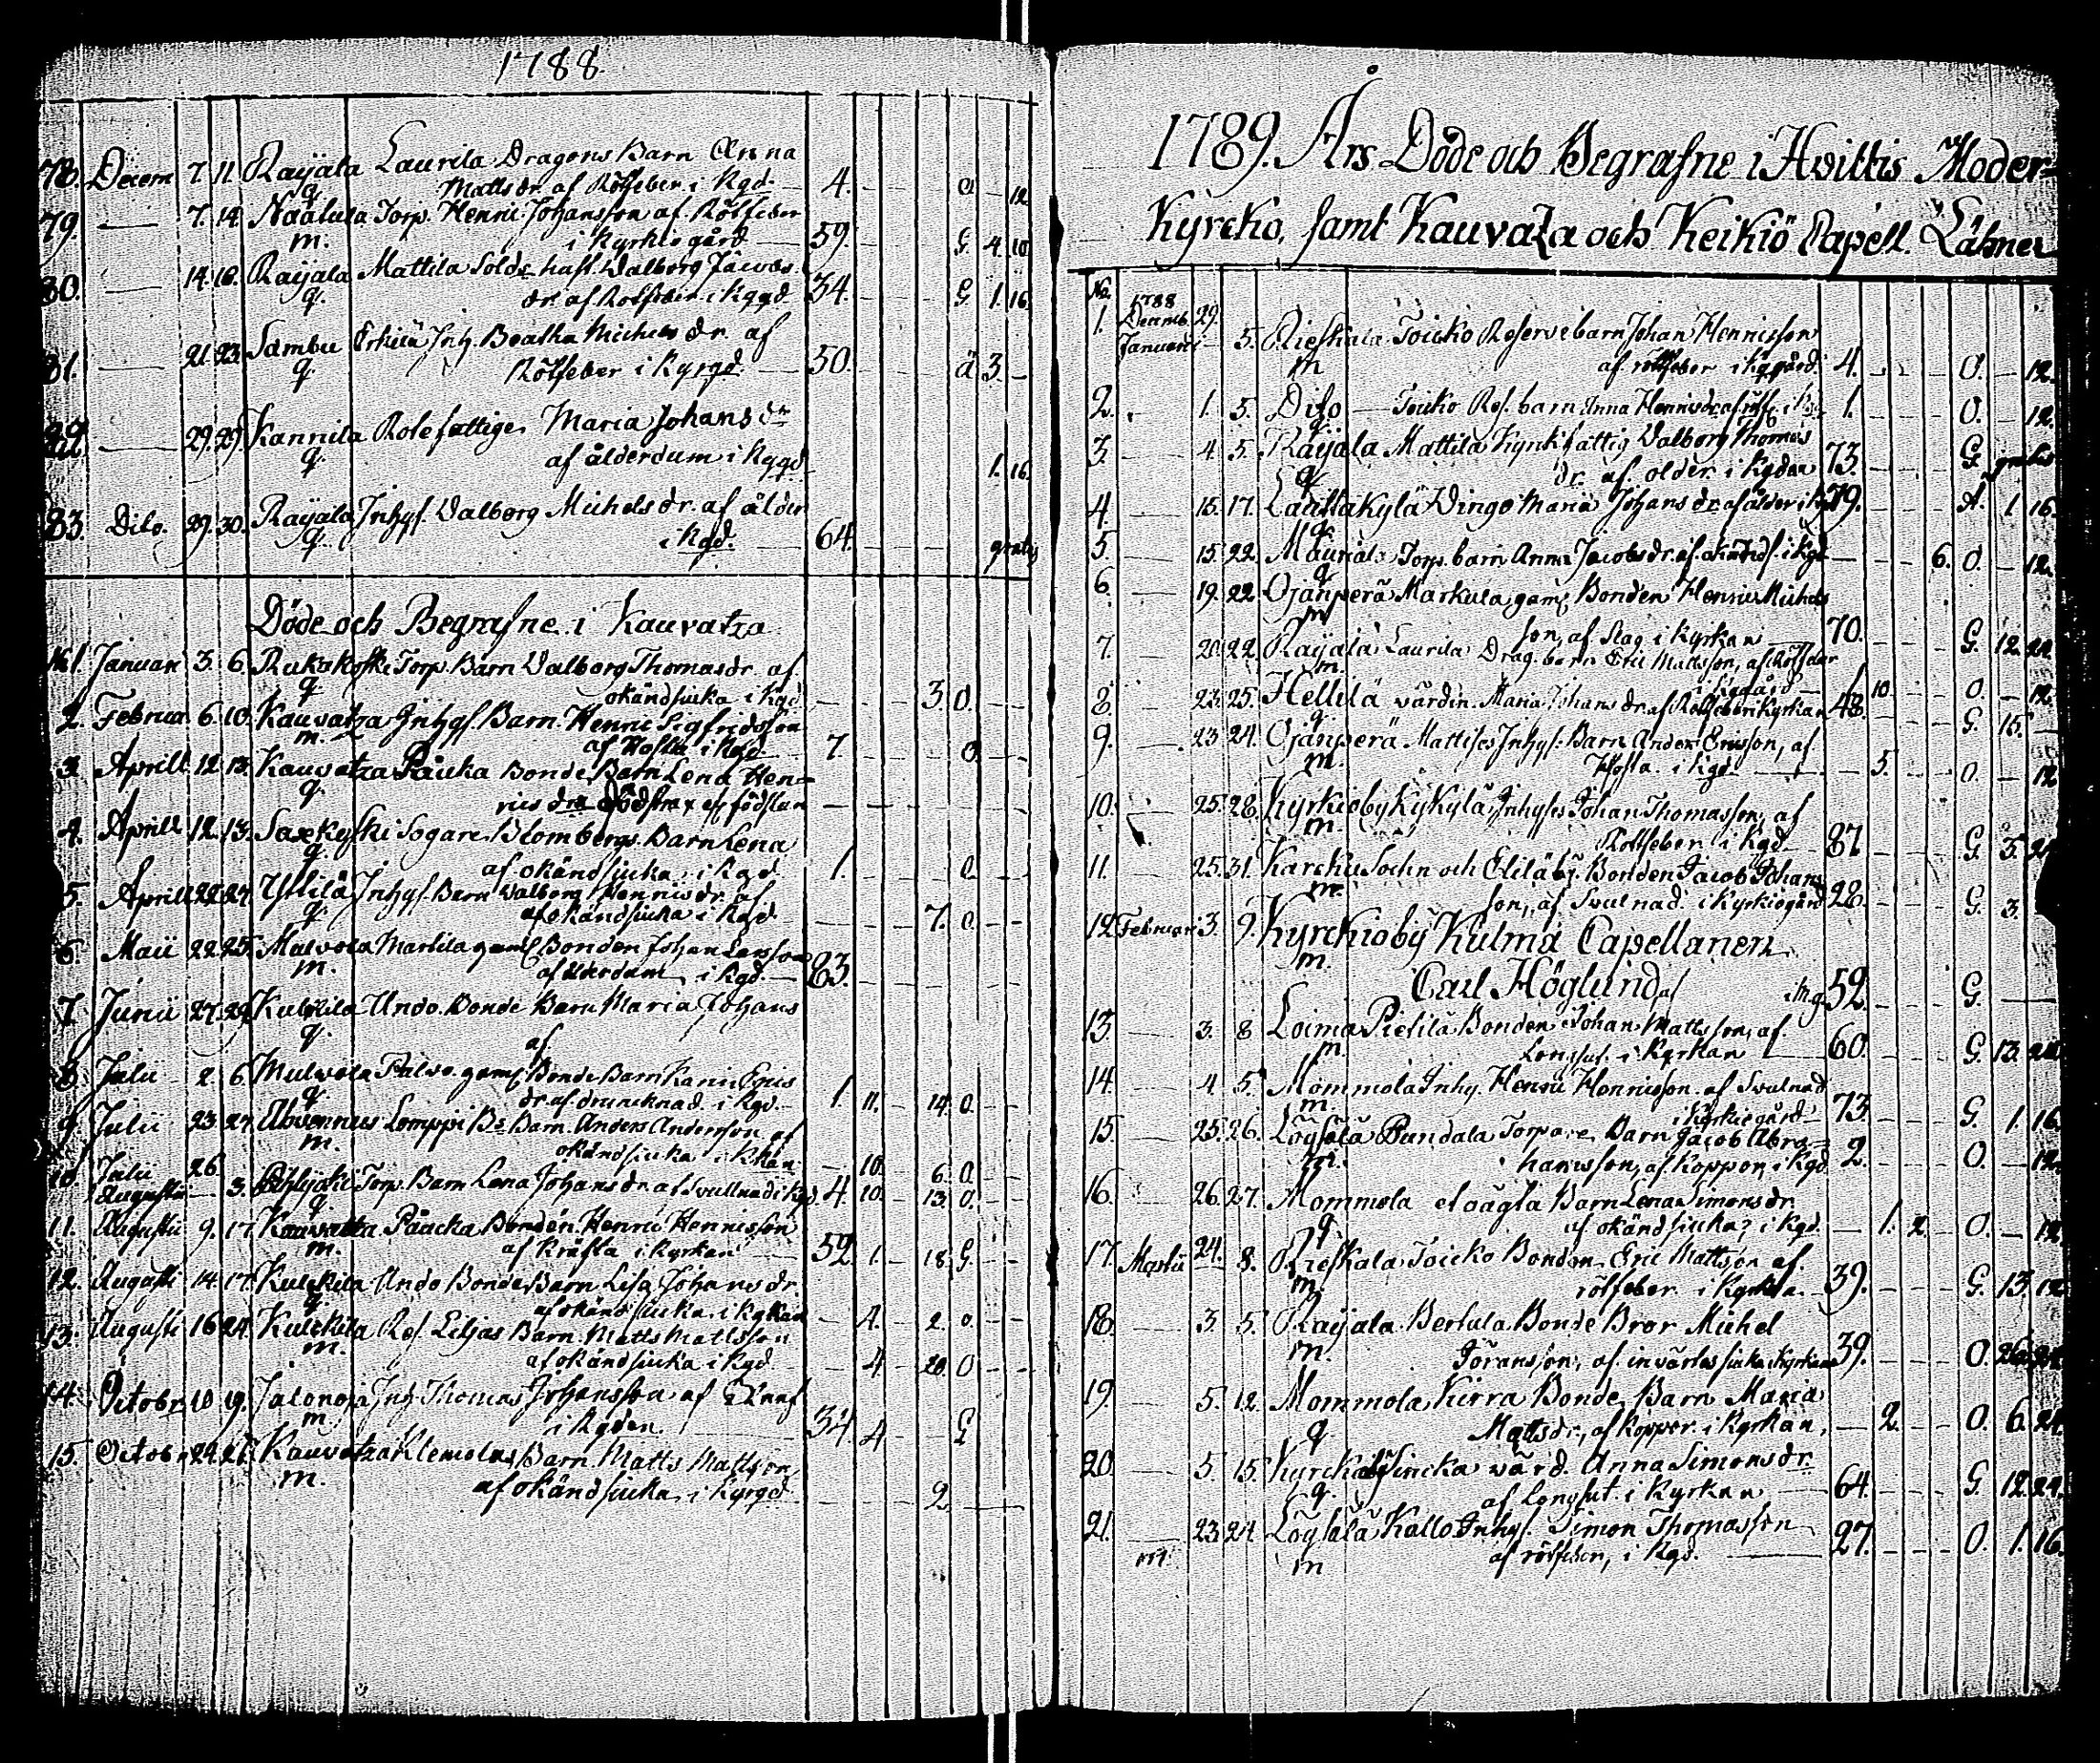 1788
78. Decem 7. 11. Raijala Laurila Dragons Barn Anna
q. Matts dr. af Rötfeber i Kgd. 4. O 12
79. — 7. 14. Naatula Torp. Henric Johansson af Rötfeber
m. i Kyrkio gård 59. G 4. 10
80. — 14. 18. Raijala Mattila Solds hust. Walborg Jacobs
q. dr. af Rötfeber i Kggd 34. G 1. 16
81. — 21. 23. Sambu Erkilä Inh. Beatha Michels dr. af
q. Rötfeber i Kyrgd. 50. ä 3. —
82 — 29. 29. Kannila Rotefattige Maria Johans dr
q. af ålderdum i Kggd 1. 16.
83. Dito. 29. 30. Raijala Inhys. Walborg Michels dr. af ålder
q. i Kgd. 64. gratis
Döde och Begrafne i Kauvatza
No 1. Januari 3. 6. Rukakoski Torp. Barn Walborg Thomas dr. af
q. okänd siuka i Kgd. 3. O.
2. Februar 6. 10. Kauvatza Inhys. Barn. Henric Sigfredsson
m. af Hosta i Kgd 7. O.
3. Aprill 12. 13. Kauvatza Paicka Bonde Barn Lena Hen-
q. rics dr
4. Aprill 12. 13. Saxekyski Sogare Blombergs Barn Lena
q. af okänd siuka i Kgd. 1. O
5. Aprill 22. 27. Yttilä Inhys. Barn Walborg Henrics dr. af
q. af okänd siuka i Kgd. 7. O
6. Maii 22. 25. Malvola Marttila gaml Bonden Johan Larsson
m. af ålderdum i Kgd. 83.
7. Junii 27. 29. Kulckila Undo Bonde Barn Maria Johans
q. af
8. Julii 2. 6. Mulvola Palvo gaml Bonde Barn Karin Erics
q. dr af druncknad i Kgd. 1. 11. 14. O.
9. Julii 23. 27. Ahvennus Lomppi Bs Barn. Anders Andersson af
m. okänd siuka i Kkan 10. 6. O.
10. Julii 26
Augustii — 3. Torp. Barn Lena Johans dr. af Svullnad i Kgd 4. 10. 13. O.
q.
11. Augusti 9. 17. Kauvatza Påucka Bonden Henric Henricsson
m. af Kräfta i Kyrkan 52. 1. 18. G
12. Augusti 14. 17. Kulckila Undo Bonde Barn Lisa Johans dr.
q. af okänd siuka i Kgkan 4. 2. O
13. Augusti 16 24. Kulckila Res. Liljas Barn Matts Mattsson
m. af okänd siuka i Kgd 4 20. O
14. Octobr 10 19. Jalonoja Inh Thomas Johansson af
m i Kgden. 34. 4 G
15. Octobr 24. 26. Kauvatza Klemolas Barn Matts Mattson
m. af okänd siuka i Kyrgd 2
1789. Års Döde och Begrafne i Hvittis Moder-
Kyrcko, samt Kauvatza och Keikiö Capell. Lähner
No.
1. 1788 Decemb. 29.
Januari — 5. Rieskala Toicko Reserve barn Johan Henricsson
m af rötfeber i Kggård 4. O. — 12.
2. 1. 5. Dito — Toicko Res. barn Anna Henrics dr. af rötf. i Kg 1. O. — 12.
q
3. — 4. 5. Raijala Mattila Kyrk fattig Walborg Thomas
q dr. af ålder i Kgden 73. G. gratis
4. — 15. 17. Lauttakylä Wingo Maria Johans dr. af ålder i Kgd 79. A. 1 16.
q
5. — 15. 22. Mauriala Torp. barn Anna Jacobs dr. af okänd s. i Kgd 6. O. — 12.
q
6. — 19. 22 Ojänperä Markula gaml Bonden Henric Michels
m son, af Slag i Kyrkan 70. G. 12. 24.
7. — 20. 22. Raijala Laurila Drag. barn Eric Mattsson, af Rötfeber
m. i Kggård 1. 10. O. — 12.
8. — 23. 25. Hellilä värdin. Maria Johans dr. af Rötfeber i Kyrkan 48. G. 15. —
q
9. — 23. 24. Ojänperä Mattises Inhys. Barn Anders Ericsson, af
m. Hosta i Kgd. 5. O. — 12
10. — 25. 28. Kyrkioby Kykylä Inhyses Johan Thomasson, af
m. Rottfeber i Kgd 87 G. 3.
11. 25. 31. Karckü Sochn och Eliläby Bonden Jacob Johans
m. son, af Svulnad i Kyrkiogård 28. G. 3.
12. Februari 3. 9. Kyrckioby Kulma Capellanen
m. Carl Höglund af i Kg. 52. G.
13. — 3. 8 Loima Pietilä Bonden Johan Mattsson, af
m. Longsut. i Kyrkan 60. G. 13. 24.
14. — 4. 5. Mommola Inhy. Henric Henricsson af Svulnad
m. i Kyrkiegård 73. G. 1. 16.
15. — 25. 26. Löysälä Pundala Torpare Barn Jacob Abra-
m. hamsson, af Koppor, i Kgd 2. O. — 12.
16. — 26. 27. Mommola Barn Lena Simons dr.
q af okänd siuka, i Kgd. 1. 2. O. — 12.
17. Martii 24. 8. Rieskala Toicko Bonden Eric Mattson af
m. rötfeber i Kyrkia. 39. G. 13. 12
18. — 3. 5. Raijala Bertula Bonde Bror Michel
m. Göransson, af invärtes siuka Kyrkan 39. O. 26. 24.
19. — 5. 12. Mommola Kirra Bonde Barn Maria
q Matts dr., af Koppor i Kyrkan, 2. O. 6. 24.
20. — 5. 15. Kyrckoby Sincka värd. Anna Simons dr.
q. af Longsut. i Kyrkan 64. G 12. 24.
21. — 23. 24. Löysälä Kallo Inhys. Simon Thomasson
m. m af rötfeber, i Kgd. 27. O. 1. 16.